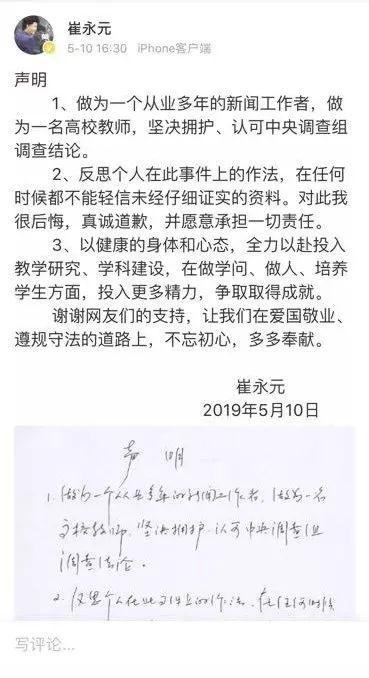 崔永元
5-10 16:30 iPhone客户端
声明
1、做为一个从业多年的新闻工作者，做
为一名高校教师，坚决拥护、认可中央调查组
调查结论。
2、反思个人在此事件上的作法，在任何
时候都不能轻信未经仔细证实的资料。对此我
很后悔，真诚道歉，并愿意承担一切责任。
3、以健康的身体和心态，全力以赴投入
教学研究、学科建设，在做学问、做人、培养
学生方面，投入更多精力，争取取得成就。
谢谢网友们的支持，让我们在爱国敬业、
遵规守法的道路上，不忘初心，多多奉献。
崔永元
2019年5月10日
声 明
1. 做为一个从业多年的新闻工作者，做为一名
高校教师，坚决拥护、认可中央调查组
调查结论。
2. 反思个人在此事件上的作法，在任何时候
写评论...